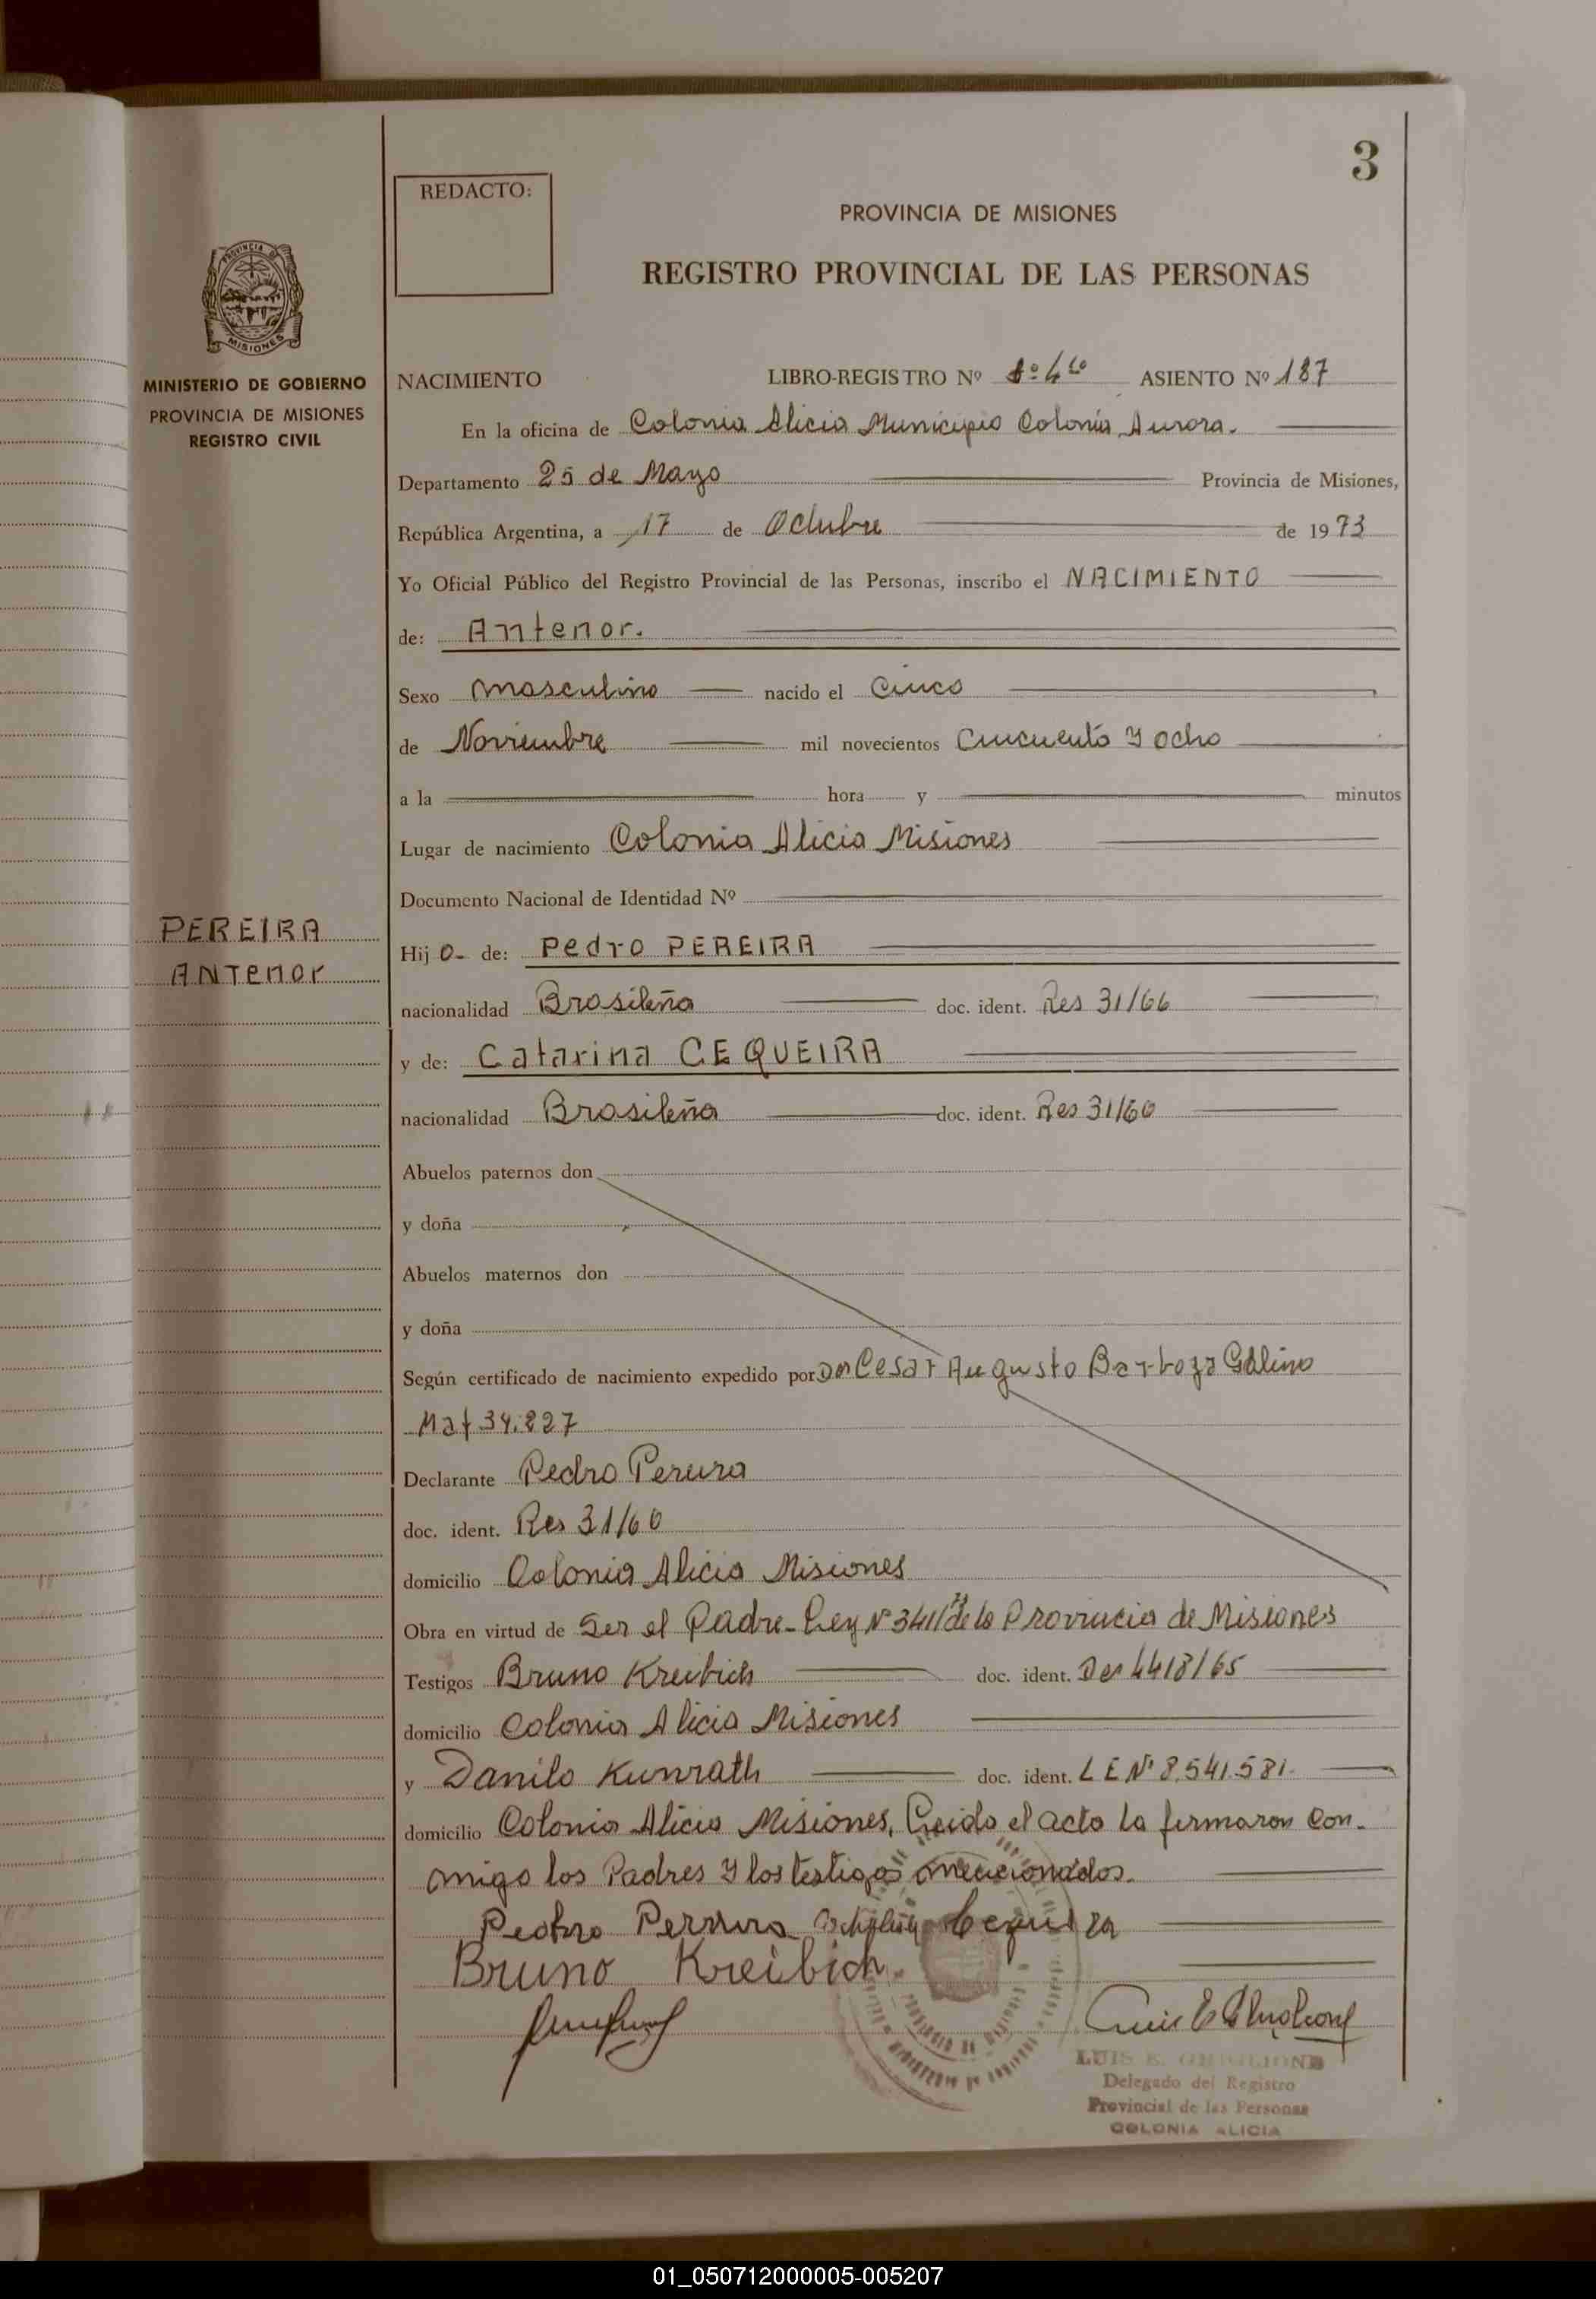 3
REDACTO:
PROVINCIA DE MISIONES
REGISTRO PROVINCIAL DE LAS PERSONAS
PROVINCIA DE
MISIONES
MINISTERIO DE GOBIERNO
PROVINCIA DE MISIONES
REGISTRO CIVIL
NACIMIENTO LIBRO-REGISTRO Nº ASIENTO Nº 187
En la oficina de Colonia Alicia Municipio Colonia Aurora.
Departamento 25 de Mayo Provincia de Misiones,
República Argentina, a 17 de Octubre de 1973
Yo Oficial Público del Registro Provincial de las Personas, inscribo el NACIMIENTO
de: Antenor.
Sexo masculino nacido el Cinco
de Noviembre mil novecientos Cincuenta y ocho
a la hora y minutos
Lugar de nacimiento Colonia Alicia Misiones
Documento Nacional de Identidad Nº
PEREIRA
ANTenor
Hijo- de: Pedro PEREIRA
nacionalidad Brasileña doc. ident. Res 31/66
y de: Catarina CEQUEIRA
nacionalidad Brasileña doc. ident. Res 31/60
Abuelos paternos don
y doña
Abuelos maternos don
y doña
Según certificado de nacimiento expedido por Dor Cesar Augusto Barboza Galino
Mat 34.227
Declarante Pedro Pereira
doc. ident. Res 31/60
domicilio Colonia Alicia Misiones
Obra en virtud de Ser el Padre- Ley Nº 341/ de la Provincia de Misiones
Testigos Bruno Kreibich doc. ident. 4418/65
domicilio Colonia Alicia Misiones
y Danilo Kunrath doc. ident. L E Nº 8.541.581.
domicilio Colonia Alicia Misiones, Leido el acto la firmaron con-
migo los Padres y los testigos mencionados.
Pedro Pereira
Bruno Kreibich.
LUIS E.
Delegado del Registro
Provincial de las Personas
COLONIA ALICIA
01_050712000005-005207